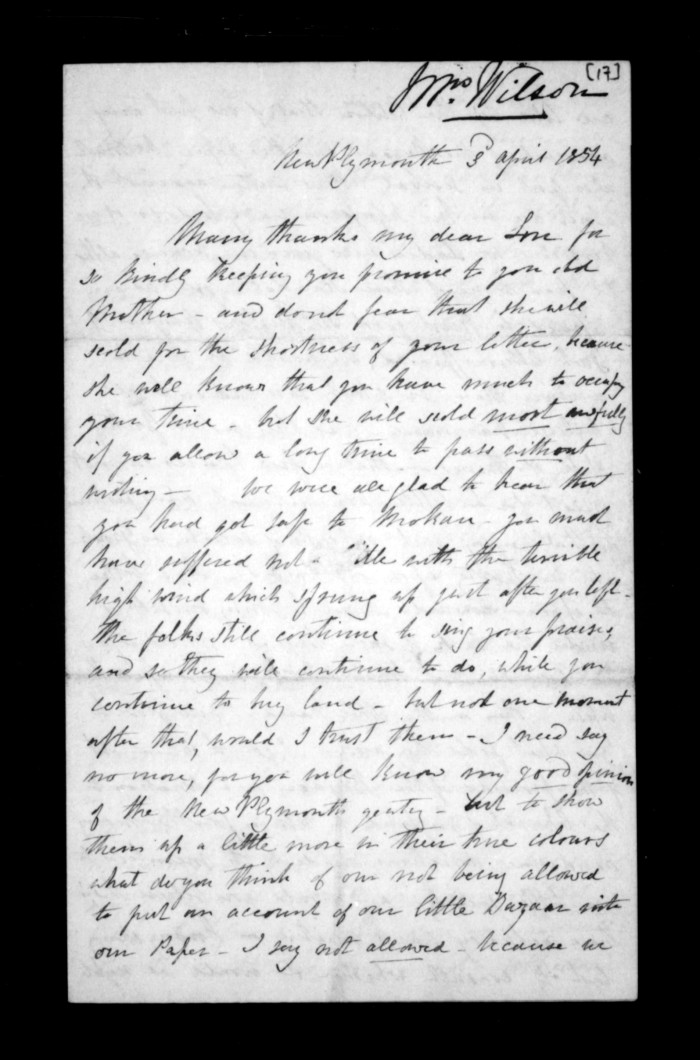 [17]
Mrs. Wilson
New Plymouth 3 april 1854
Many thanks my dear Son for
so kindly keeping your promise to your old
Mother - and do not fear that she will
scold for the shortness of your letter, because
she well knows that you have much to occupy
your time - but she will scold most awfully
if you allow a long time to pass without
writing - We were all glad to hear that
you had got safe to Mokau - you must
have suffered not a little with the terrible
high wind which sprung up just after you left -
the folks still continue to sing your praises
and so they will continue to do, while you
continue to buy land - but not one moment
after that, would I trust them - I need say
no more, for you well know my good opinion
of the New Plymouth gentry - but to show
them up a little more in their true colours
what do you think of our not being allowed
to put an account of our little Bazaar into
our Paper - I say not allowed - because we